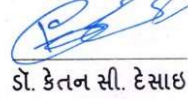 ડૉ. કેતન સી. દેસાઈ